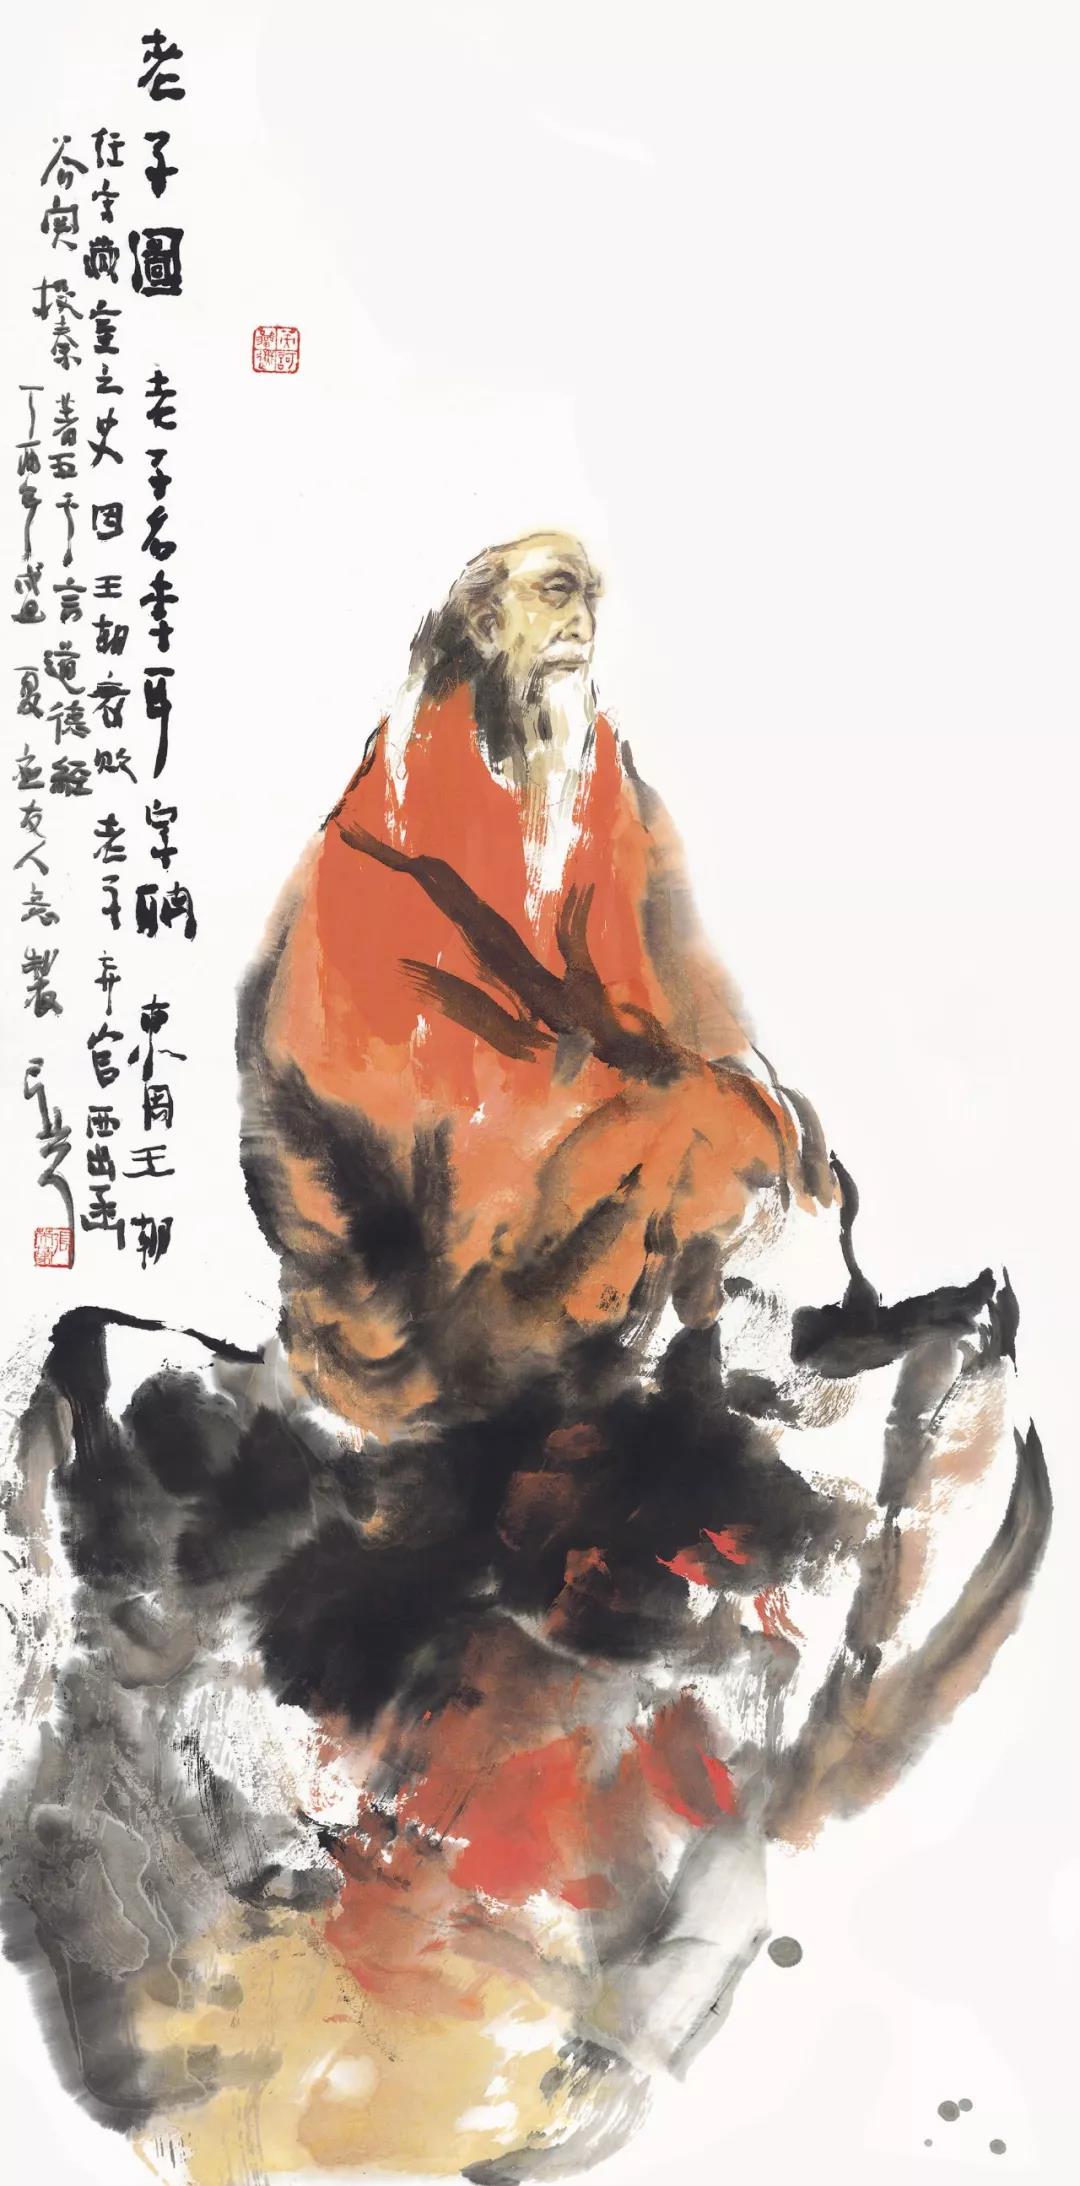 老子圖 老子名李耳 字聃 東周王朝
任守藏室之史 因王朝衰败 老子弃官西出函
谷 投秦 著五千言道德經
丁酉年盛夏 应友人 製